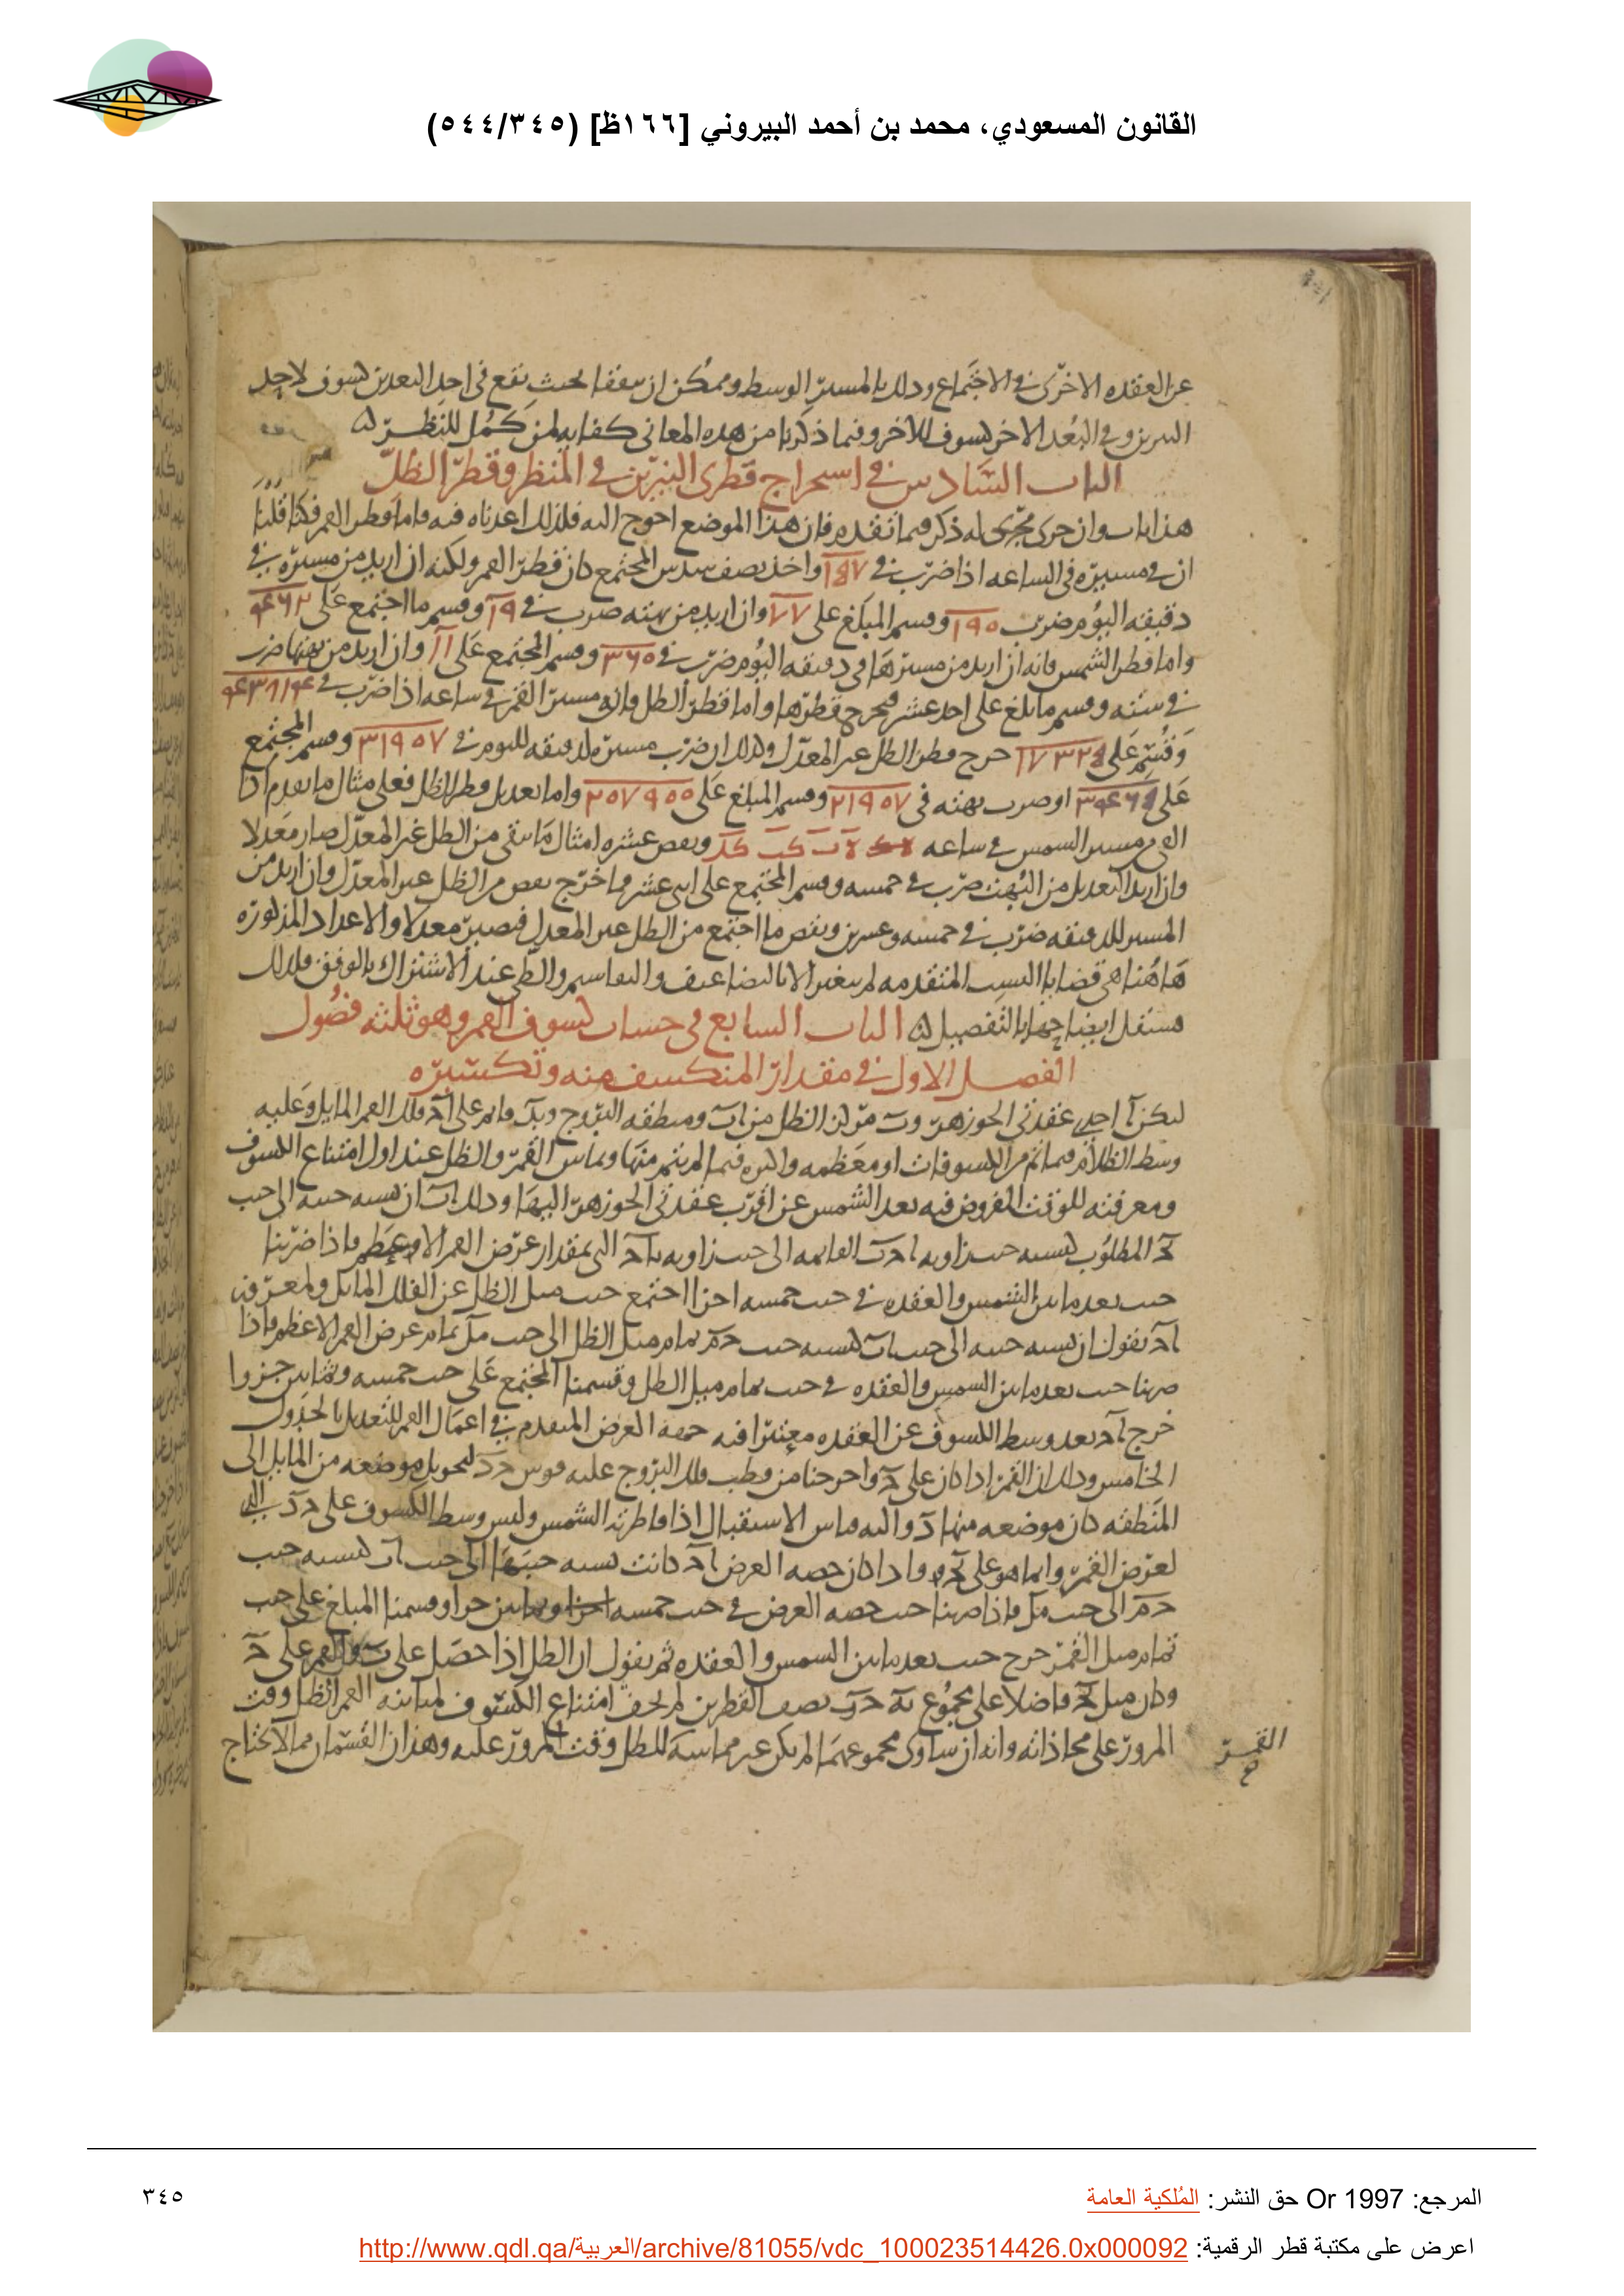 القانون المسعودي، محمد بن أحمد البيروني [١٦٦ظ] (٥٤٤/٣٤٥)
عن العقده الاخرى فى الاجتماع وذلك بالمسير الوسط وممكن ان يتفقا بحيث يقع فى احد البعدين كسوف لاحد
النيرين وفى البعد الاخر كسوف للاخر وفيما ذكرنا من هذه المعانى كفايه لمن كمل للنظر
الباب السادس فى استخراج قطرى النيرين فى المنظر وقطر الظل
هذا باب وان جرى مجرى له ذكر فيما تقدم فان هذا الموضع احوج اليه فلذلك اعدناه فيه فاما قطر القمر فكنا قلنا
ان فى مسيره فى الساعه اذا ضرب فى واخذ نصف سدس المجتمع كان قطر القمر ولكنه ان اريد من مسيره فى
دقيقه اليوم ضرب وقسم المبلغ على ٧٧ وان اريد من بهته ضرب فى ١٩ وقسم ما اجتمع على
واما قطر الشمس فانه ان اريد من مسيرها فى دقيقه اليوم ضرب فى ٣٦٥ وقسم المجتمع على ١١ وان اريد من بهتها ضرب
فى سته وقسم ما بلغ على احد عشر فيخرج قطرها واما قطر الظل فان مسير القمر فى ساعه اذا ضرب فى
وقسم على خرج قطر الظل غير المعدل وكذلك ان ضرب مسيره لدقيقه لليوم فى ٣١٩٥٧ وقسم المجتمع
على او ضرب بهته فى ٢١٩٥٧ وقسم المبلغ على ٢٥٧٩٥٥ واما تعديل قطر الظل فعلى مثال ما تقدم اذا
القى مسير الشمس فى ساعه ونقص عشره امثال ما يبقى من الظل غير المعدل صار معدلا
وان اريد التعديل من البهت ضرب فى خمسه وقسم المجتمع على اثنى عشر وما خرج نقص من الظل غير المعدل وان اريد من
المسير للدقيقه ضرب فى خمسه وعشرين ونقص ما اجتمع من الظل غير المعدل فيصير معدلا والاعداد المذكوره
هاهنا هى قضايا النسب المتقدمه لم يتغير الا بالتضاعيف والتقاسيم والطى عند الاشتراك بالوفق فلذلك
الباب السابع فى حساب كسوف القمر وهو ثلثه فصول
الفصل الاول فى مقدار المنكسف منه وتكسيره
ليكن آ احدى عقدتى الجوزهر وب مركز الظل من اب ومنطقه البروج وبد قائم على اد فلك القمر المايل وعليه
وسط الظلام فيما تم من الكسوفات او معظمه واكثره فيما لم يتم منها وتماس القمر والظل عند اول امتناع الكسوف
ومعرفته للوقت المفروض فيه بعد الشمس عن اقرب عقدتى الجوزهر اليها وذلك اب ان نسبه جيبه الى جيب
المطلوب كنسبه جيب زاويه القايمه الى جيب زاويه التى بمقدار عرض القمر الاعظم فاذا ضربنا
جيب بعد ما بين الشمس والعقده فى جيب خمسه اجزا اجتمع جيب ميل الظل عن الفلك المايل ولمعرفه
اد نقول ان نسبه جيبه الى جيب اب كنسبه جيب تمام ميل الظل الى جيب تمام عرض القمر الاعظم فاذا
ضربنا جيب بعد ما بين الشمس والعقده فى جيب تمام ميل الظل وقسمنا المجتمع على جيب خمسه وثمانين جزوا
خرج اد بعد وسط الكسوف عن العقده معتبرا فيه حصه العرض المتقدم فى اعمال القمر للتعديل بالجدول
الخامس وذلك ان القمر اذا كان على واخرجنا من قطب فلك البروج عليه قوس لتحويل موضعه من المايل الى
المنطقه كان موضعه منها واليه قياس الاستقبال اذا قاطرته الشمس وليس وسط الكسوف على التى
لعرض القمر وانما هو على واذا كان حصه العرض اد كانت نسبه جيبها الى جيب اب كنسبه جيب
الى جيب فاذا ضربنا جيب حصه العرض فى جيب خمسه وثمانين جزا وقسمنا المبلغ على جيب
تمام ميل القمر خرج جيب بعد ما بين الشمس والعقده ثم نقول ان الظل اذا حصل على والقمر على
وكان ميل فاضلا على مجموع نصف القطرين لم يخف امتناع الكسوف لمباينه القمر الظل وقت
المرور على محاذاته وانه ان ساوى مجموعهما لم يكن غير مماسه للظل وقت المرور عليه وهذان القسمان مما لا يحتاج
القمر
المرجع: Or 1997 حق النشر: المُلكية العامة
٣٤٥
اعرض على مكتبة قطر الرقمية: http://www.qdl.qa/العربية/archive/81055/vdc_100023514426.0x000092